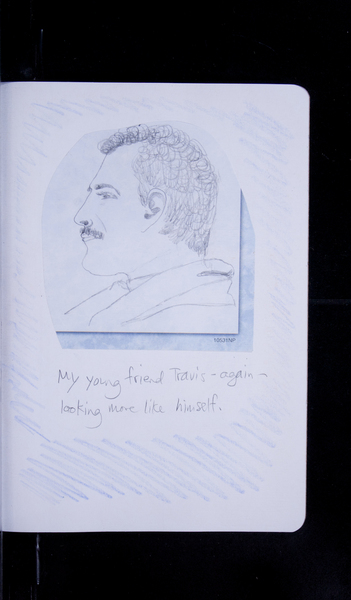 10031NP
My young friend Travis - again -
looking more like himself.